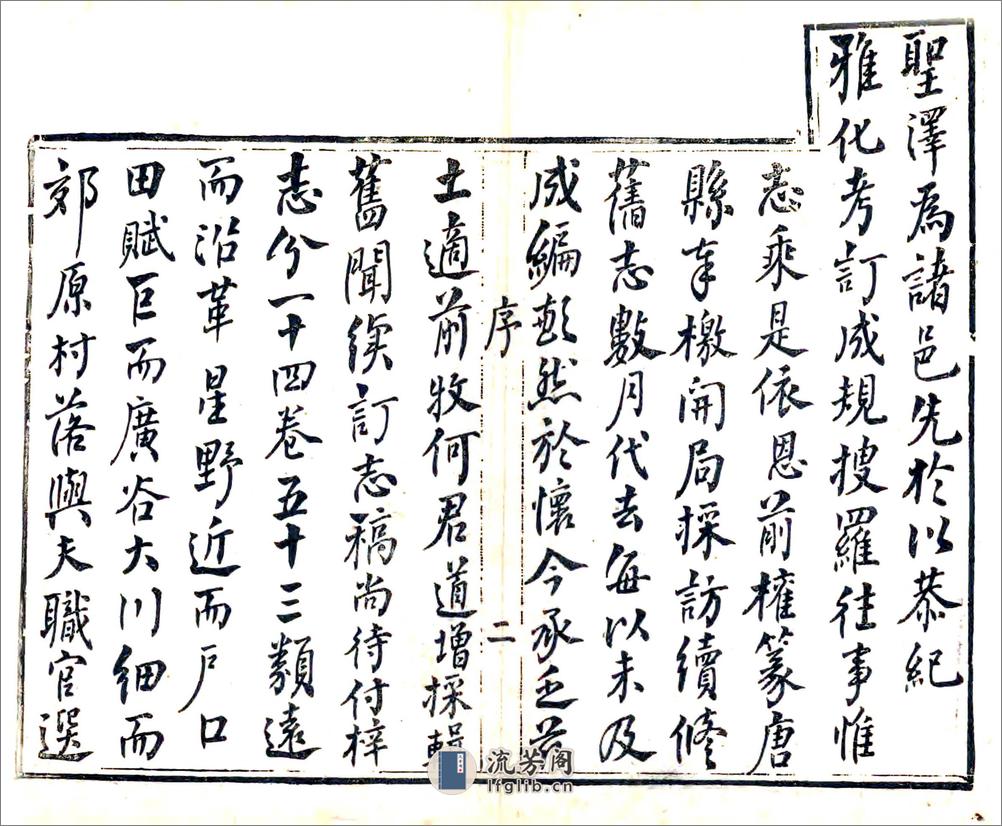 聖澤爲諸邑先於以恭紀
雅化考訂成規搜羅往事惟
志乘是依恩前權篆唐
縣奉檄開局採訪續修
舊志數月代去每以未及
成編耿然於懷今承乏茲
序 二
土適前牧何君道增採輯
舊聞續訂志稿尚待付梓
志分一十四卷五十三類遠
而沿革星野近而戶口
田賦巨而廣谷大川細而
郊原村落與夫職官選
流芳阁
lfglib.cn